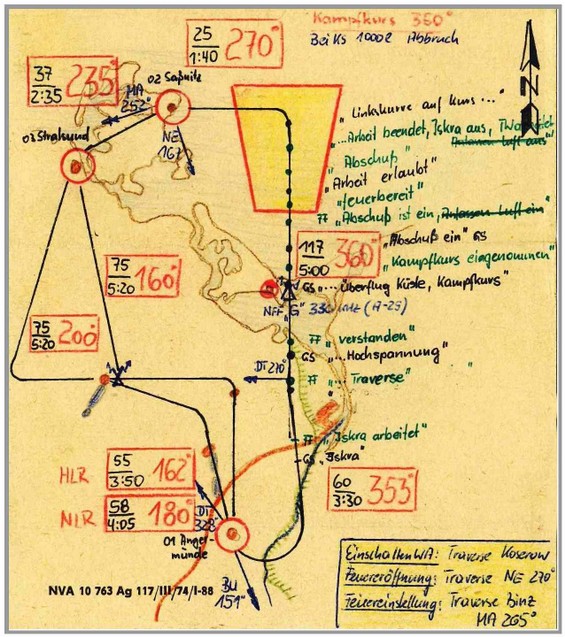 25 1:40 270°
Kampfkurs 360°
Bei Ks 1000Z Abbruch
37 2:35 235°
02 Saßnitz
MA 252°
NE 167°
03 Stralsund
N
"Linkskurve auf Kurs ..."
"...Arbeit beendet, Iskra aus,
Anlassen Luft aus"
"Abschuß"
"Arbeit erlaubt"
"feuerbereit"
FF "Abschuß ist ein, Anlassen Luft ein"
"Abschuß ein" GS
117 5:00 360°
"Kampfkurs eingenommen"
GS "... Überflug Küste, Kampfkurs"
NFF "G" 330 (A-25)
75 5:20 160°
75 5:20 200°
FF "verstanden"
GS "...Hochspannung"
DT 270°
FF "... Traverse"
FF "Iskra arbeitet"
GS "Iskra"
HLR 55 3:50 162°
NLR 58 4:05 180°
DT 328°
60 3:30 353°
01 Anger-
münde
BU 151°
NVA 10 763 Ag 117/III/74/I-88
Einschalten WA: Traverse Koserow
Feuereröffnung: Traverse NE 270°
Feuereinstellung: Traverse Binz
MA 265°